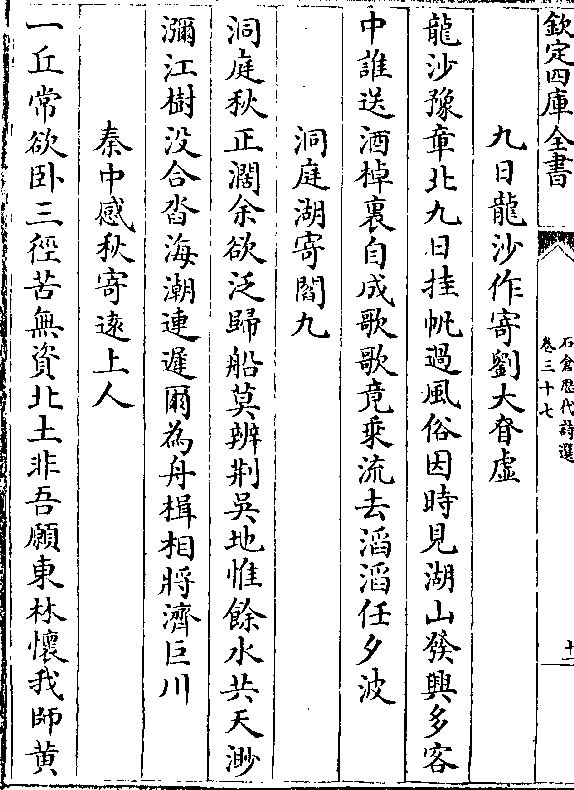 欽定四庫全書
石倉歷代詩選
卷三十七
十二
九日龍沙作寄劉大眘虚
龍沙豫章北九日挂帆過風俗因時見湖山發興多客
中誰送酒棹裏自成歌歌竟乘流去滔滔任夕波
洞庭湖寄閻九
洞庭秋正濶余欲泛歸船莫辨荆吳地惟餘水共天渺
瀰江樹没合沓海潮連遲爾為舟楫相將濟巨川
秦中感秋寄逺上人
一丘常欲卧三徑苦無資北土非吾願東林懷我師黄